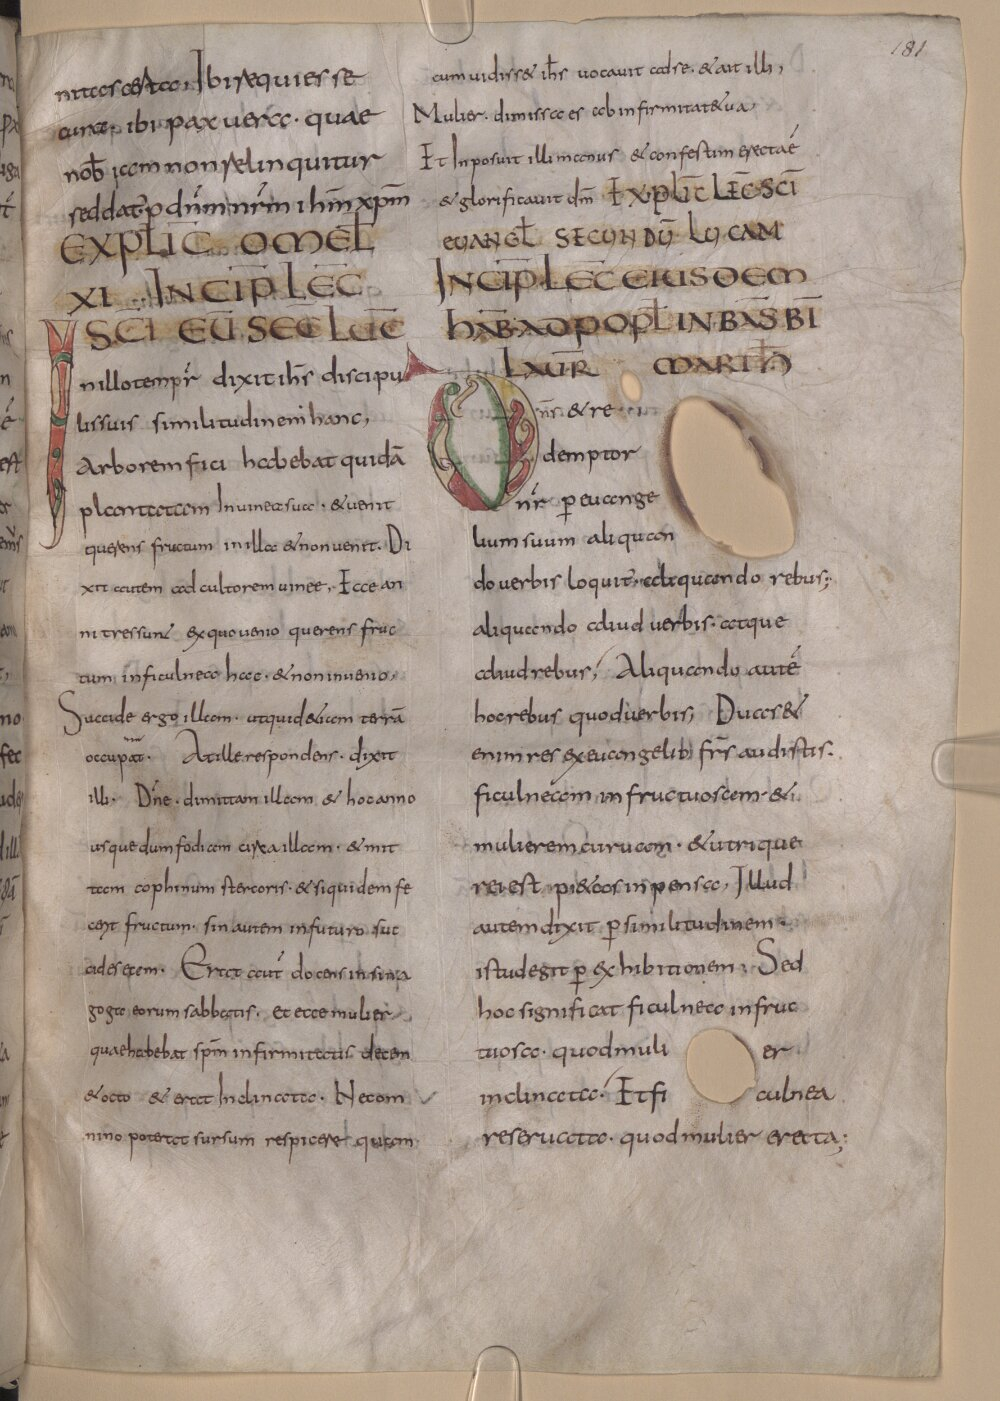 181
nitas certa. Ibi requies se
cura. ibi pax vera. quae
nob̄ iam non relinquitur
sed dat̄ p dn̄m nr̄m ihm̄ xpm̄
EXPLIC̄ OMEL̄
XI. INCIP̄ LEC̄
SC̄I EŪ SEC̄ LUC̄
In illo tempr̄ dixit ih̄s discipu
lis suis similitudinem hanc,
Arborem fici habebat quidā
plantatam In uinea sua. & uenit
querens fructum in illa & non uenit. Di
xit autem ad cultorem uinee, Ecce an
ni tres sun̄ ex quo uenio querens fruc
tum in ficulnea hac. & non inuenio.
Succide ergo illam. ut quid &iam terrā
occupat. At ille respondens. dixit
illi. Dn̄e. dimittam illam & hoc anno
usque dum fodiam circa illam. & mit
tam cophinum stercoris. & si quidem fe
cerit fructum. sin autem in futuro suc
cides eam. Erat aut̄ docens in sina
goga eorum sabbatis. et ecce mulier
quae habebat spm̄ infirmitatis decem
& octo & erat Inclinata. Nec om
nino poterat sursum respicere quam
cum uidiss& ih̄s uocauit ad se. & ait illi,
Mulier. dimissa es ab infirmitate tua
Et Inposuit illi manus & confestim erecta ē
& glorificauit dm̄ EXPLIC̄ LEC̄ SC̄I
EUANGL̄ SECUNDŪ LUCAM
INCIP̄ LEC̄ EIUSDEM
HAB̄ AD POPL̄ IN BAS̄ BĪ
LAUR̄ MARTH̄
Dn̄s. & re
demptor
nr̄ p euange
lium suum aliquan
do uerbis loquit̄. aliquando rebus;
aliquando aliud uerbis. atque
aliud rebus, Aliquando autē
hoc rebus quod uerbis, Duas &
enim res ex euangelio fr̄s audistis.
ficulneam infructuosam. &
mulierem curuam. & utrique
rei est pi&as inpensa, Illud
autem dixit p similitudinem.
istud egit p exhibitionem. Sed
hoc significat ficulnea infruc
tuosa. quod muli er
inclinata. Et fi culnea
reseruata. quod mulier erecta;